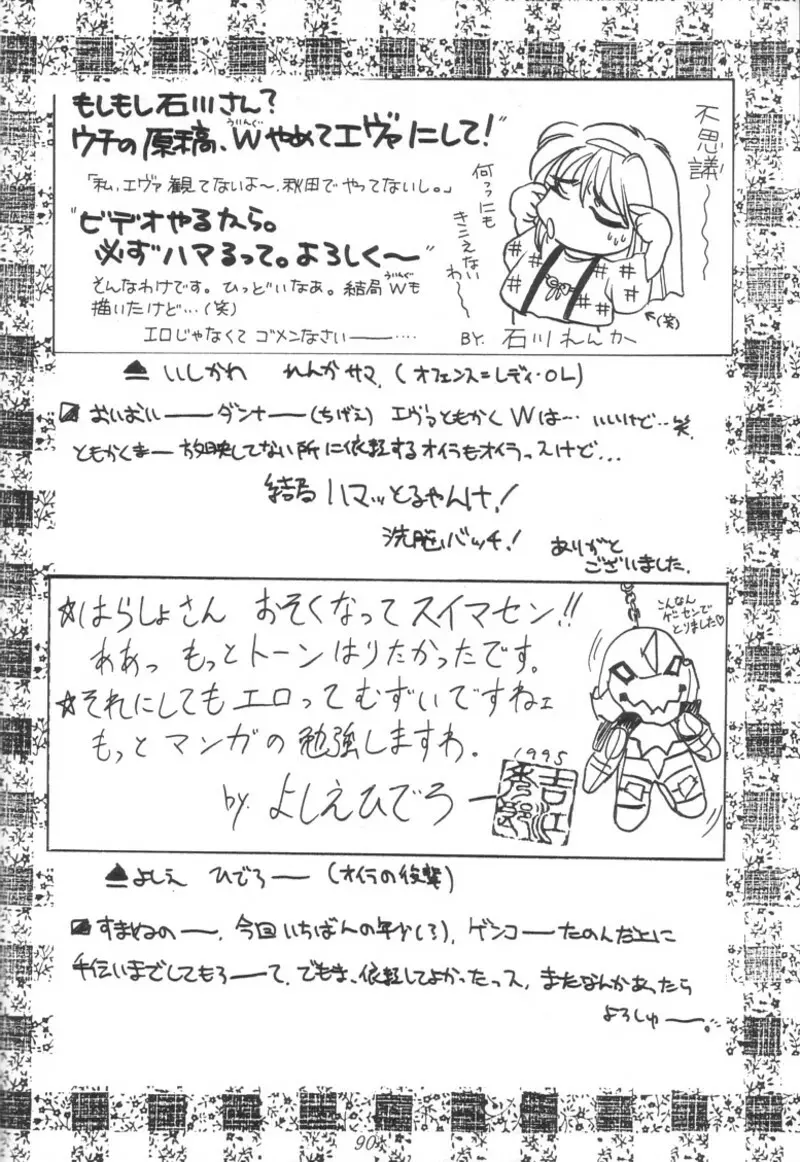 もしもし石川さん?
ウチの原稿、Wやめてエヴァにして!"
ういんぐ
「私、エヴァ観てないよ〜、秋田でやってないし。」
"ビデオやるから。
必ずハマるって。よろしく〜"
そんなわけです。ひっどいなあ。結局Wも
ういんぐ
描いたけど…(笑)
エロじゃなくてゴメンなさい——……
不思議〜〜
何っにも
きこえない
わ〜〜
←(笑)
BY. 石川れんか
▲ いしかわ れんかサマ.(オフェンス=レディ・OL)
おいおい——ダンナ——(ちげえ) エヴァともかくWは… いいけど…笑.
ともかくまー放映してない所に依頼するオイラもオイラっスけど...
結局ハマッとるやんけ!
洗脳バッチ!
ありがと
ございました.
☆はらしょさん おそくなってスイマセン!!
ああっ もっとトーンはりたかったです。
☆それにしてもエロってむずいですねェ
もっとマンガの勉強しますわ.
by. よしえひでろー
1995
こんなん
ゲーセンで
とりました♡
▲よしえ ひでろー (オイラの後輩)
すまねの——. 今回いちばんの年少(?), ゲンコ——たのんだ上に
手伝いまでしてもろーて. でもま、依頼してよかったっス, またなんかあったら
よろしゅ——。
90